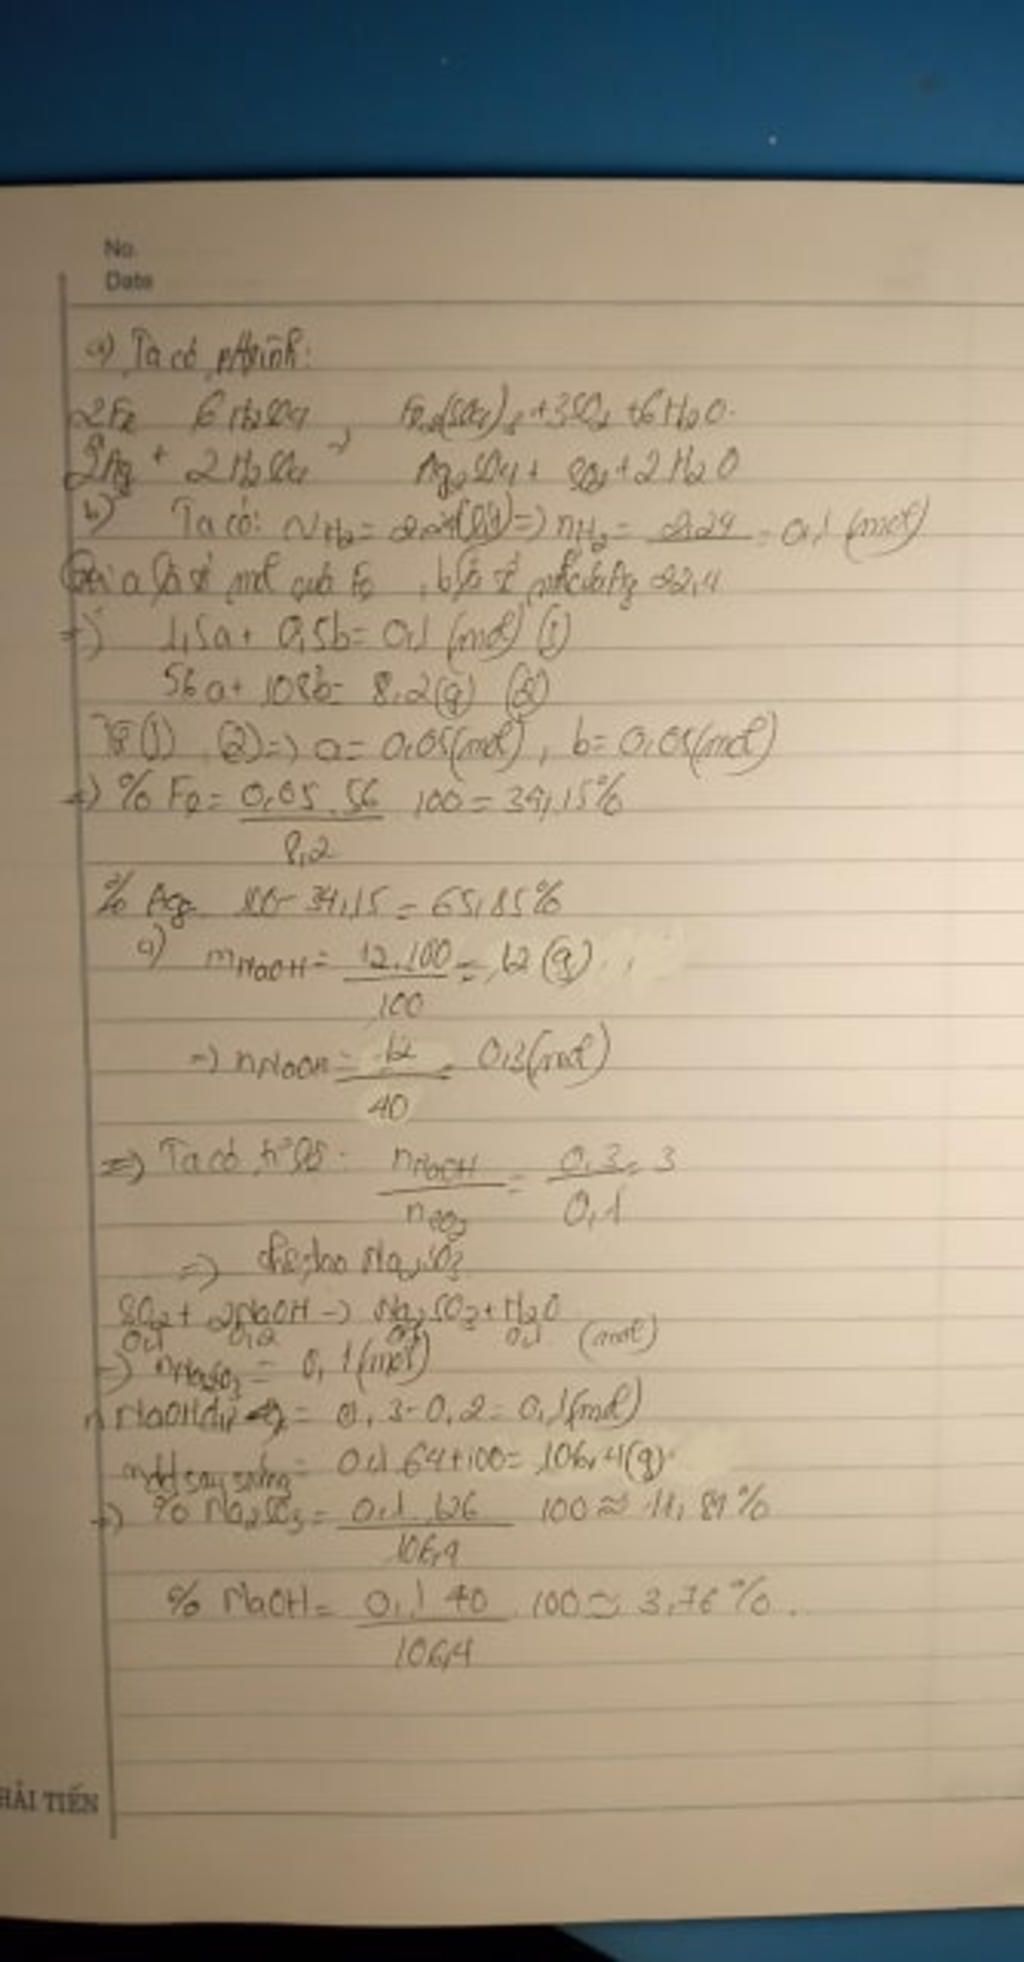 No.
Date
a) Ta có ptrình:
2Fe 6H2SO4 → Fe2(SO4)3 + 3SO2 + 6H2O
2Ag + 2H2SO4 Ag2SO4 + SO2 + 2H2O
b) Ta có: VH2 = 2,24(lít) => nH2 = 2,24 = 0,1 (mol)
Gọi a là số mol của Fe, b là số mol của Ag 22,4
=) 1,5a + 0,5b = 0,1 (mol) (1)
56a + 108b = 8,2(g) (2)
Từ (1), (2) =) a = 0,05(mol), b = 0,05(mol)
=) % Fe = 0,05 . 56 100 = 34,15%
8,2
% Ag 100 - 34,15 = 65,85%
c) mNaOH = 12.100 = 12 (g)
100
=) nNaOH = 12 = 0,3(mol)
40
=) Ta có nNaOH = 0,3 = 3
nSO2 0,1
=) chỉ tạo Na2SO3
SO2 + 2NaOH -) Na2SO3 + H2O
0,1 0,2 0,1 0,1 (mol)
=) nNa2SO3 = 0,1(mol)
nNaOH dư = 0,3 - 0,2 = 0,1(mol)
mdd sau = 0,1.64+100 = 106,4(g)
=) % Na2SO3 = 0,1.126 100 ≈ 11,84%
106,4
% NaOH = 0,1 40 100 ≈ 3,76%.
106,4
HẢI TIẾN